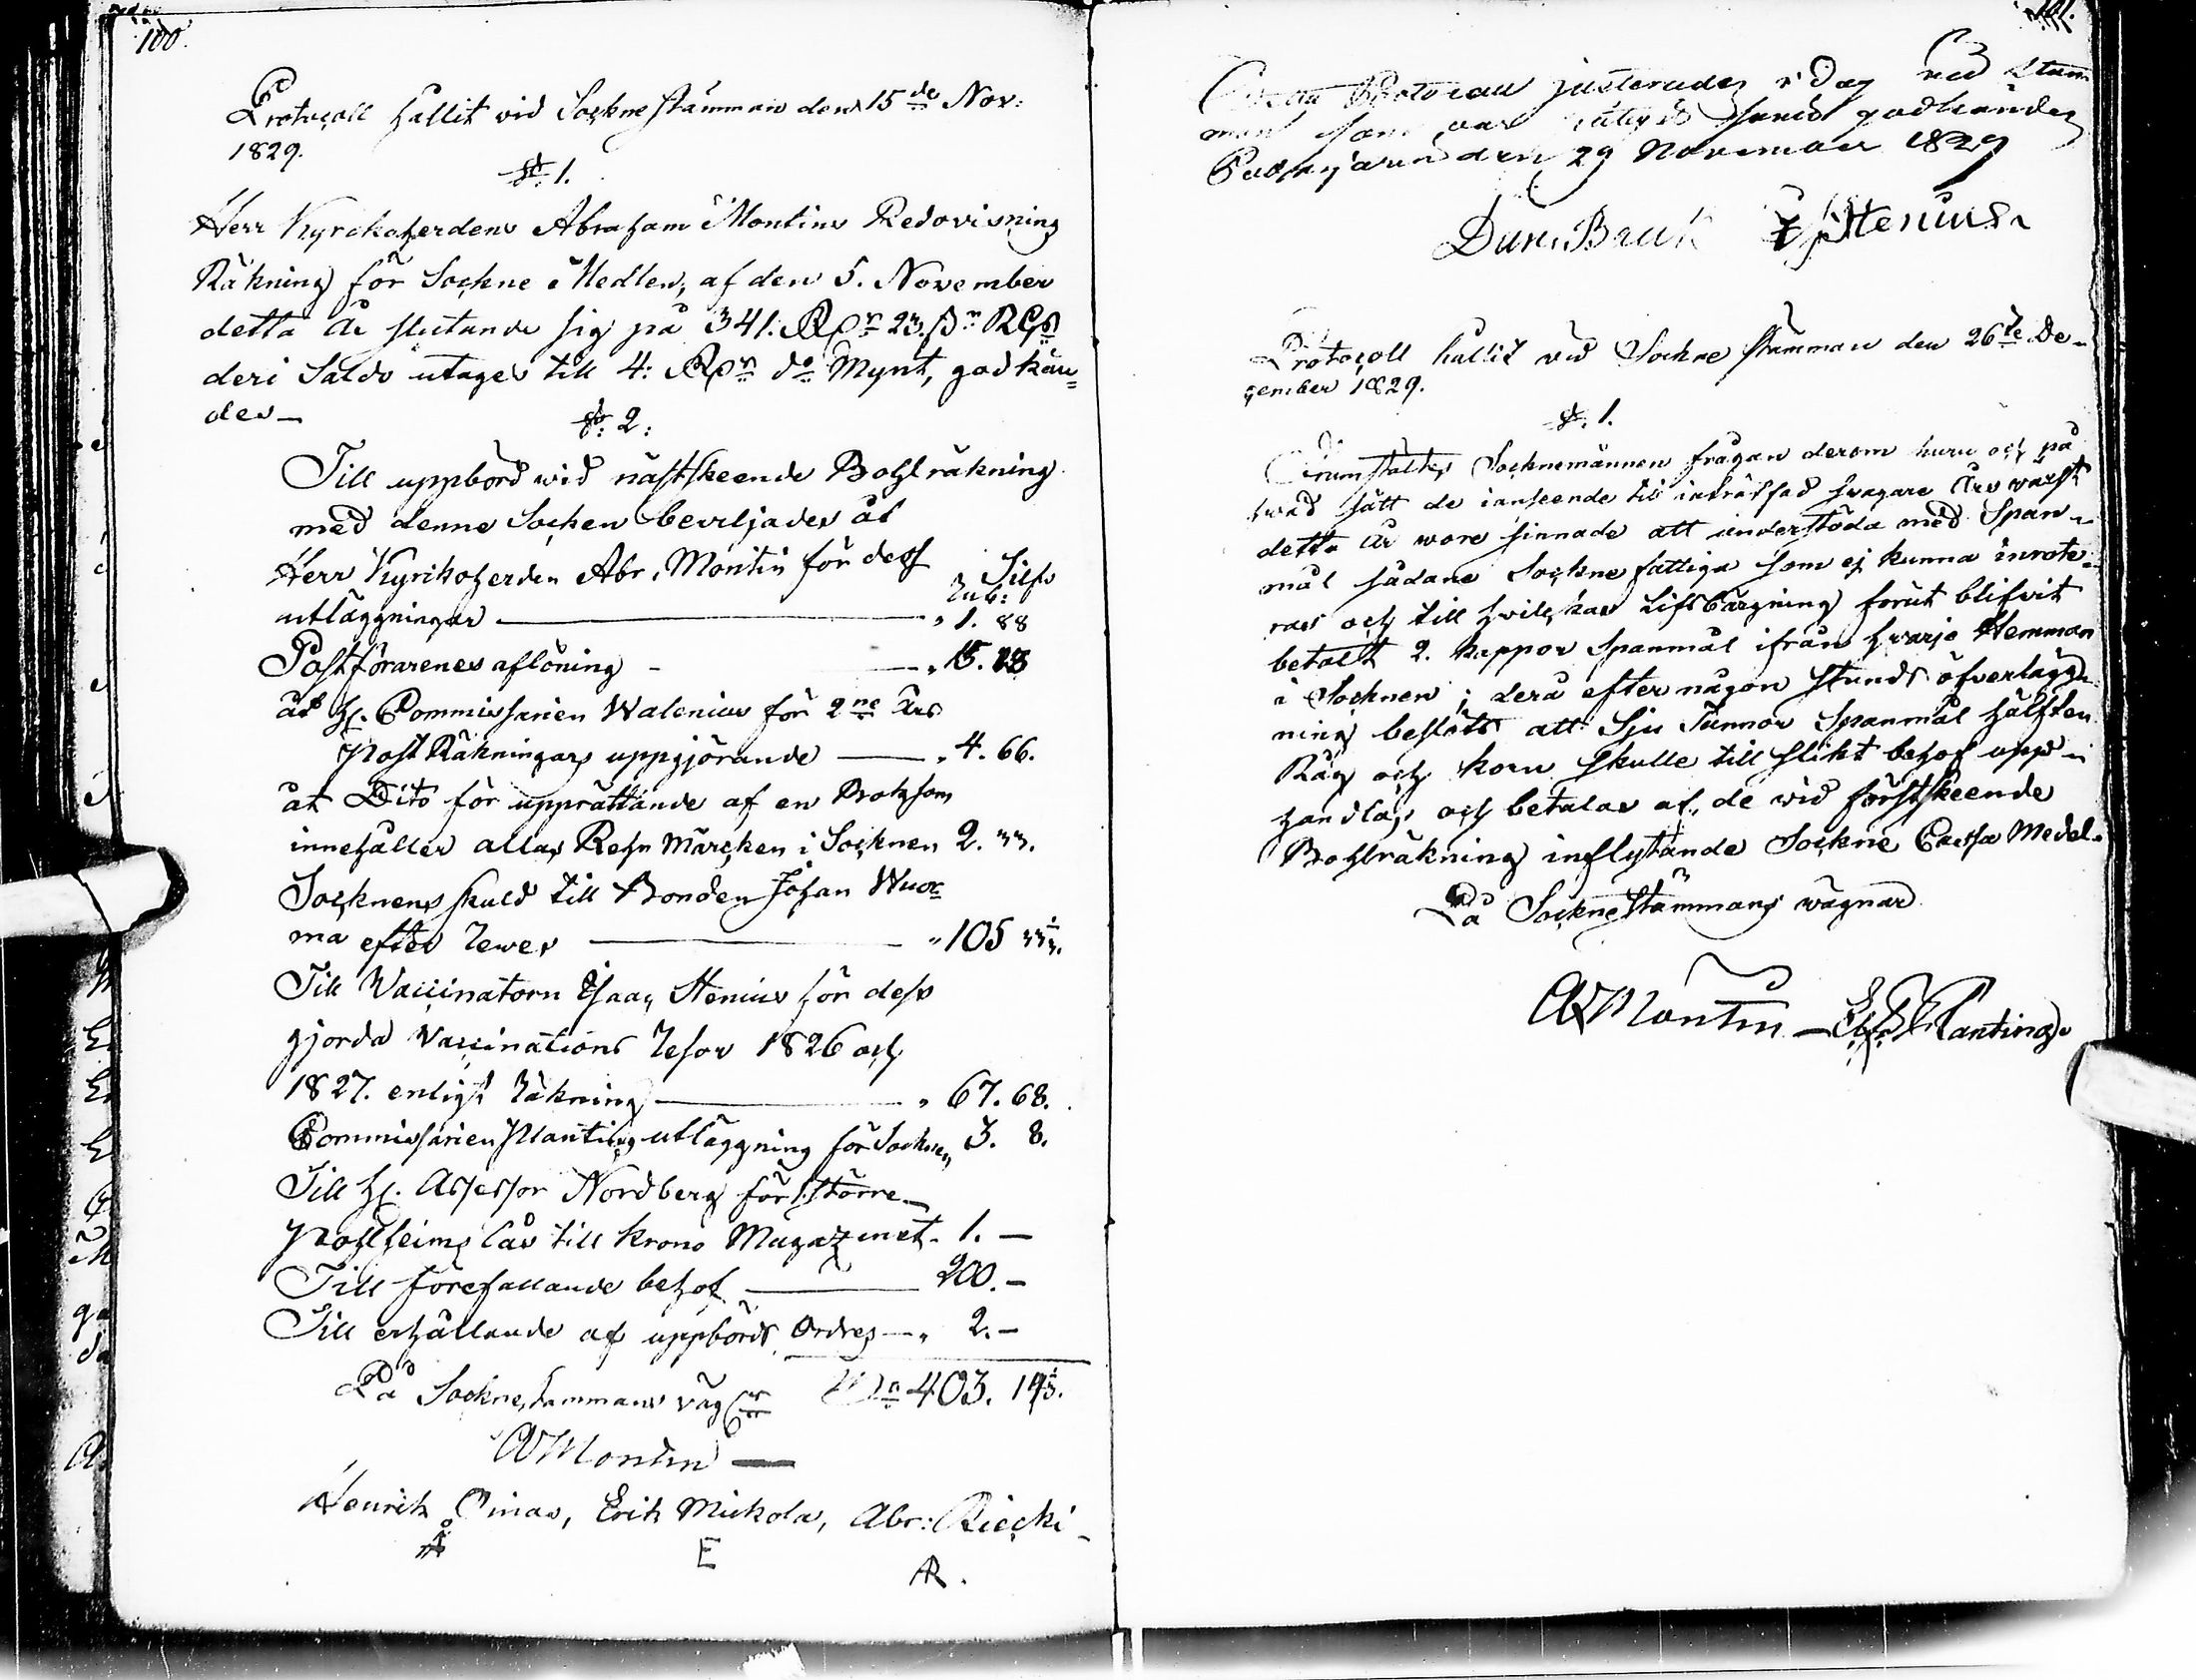 100.
Protocoll hållit vid Sockne stämman den 15de Nov:
1829.
§. 1.
Herr Kyrckoherdens Abraham Montins Redovisning
Räkning för Sockne Medlen, af den 5. November
detta År slutande sig på 341. Rr 23. RGs
deri Saldo utages till 4: Rr do Mynt, godkän=
des_
§: 2:
Till uppbörd wid nästskeende Bohlräkning
med denne Sochen beviljades åt
Herr Kyrikoherden Abr. Montin för dess
Silfr
Rub:
utläggningar — " 1. 88
Postförarenes aflöning - — " 15.
åt H. Commissarien Walenius för 2ne Års
Post Räkningars uppgjörande — " 4. 66.
åt Dito för upprättande af en Bok som
innehåller allas Rehn Märcken i Socknen 2. 33.
Socknens skuld till Bonden Johan Wuox=
ma efter Rewers — " 105 33⅓.
Till Vaccinatorn Isaac Stenius för dess
gjorda Vaccinations Resor 1826 och
1827. enligt Räkning — " 67. 68.
Commissarien Planting utläggning för Socknen 3. 8.
Till H. Assessor Nordberg för 1. större_
Pohlheims lås till Krono Magazinet. 1. —
Till förefallande behof — 200. —
Till erhållande af uppbörds Ordres — " 2. —
På Sockne stammans väg 403.
A Montin —
Henrik Oinas, Erik Mickola, Abr: Riecki_
E
AR.
101.
Protocoll justerades i dag vid Stäm
man som godkändes
den 29 November 1829
Stenius
Protocoll hållit vid Sockne stämman den 26de De_
cember 1829.
§. 1.
Socknemännen frågan derom huru och på
hvad sätt de i anseende till inträffad swagare Års växt
detta År wore sinnade att understöda med Span_
mål sådane Sockne fattiga som ej kunna inrote=
ras och till hvilckas Lifsbärgning förut blifvit
betalt 2. kappor Spanmål ifrån hvarje Hemman
i Socknen; dera efter någon stunds öfverlägg
ning beslöts att Sju Tunnor Spanmål hälften
Råg och korn skulle till slikt behof upp_
handlas och betalas af de wid förstskeende
Bohlräkning inflytande Sockne Cassa Medel.
På Sockne stämmans wägnar
A Montin — Planting.